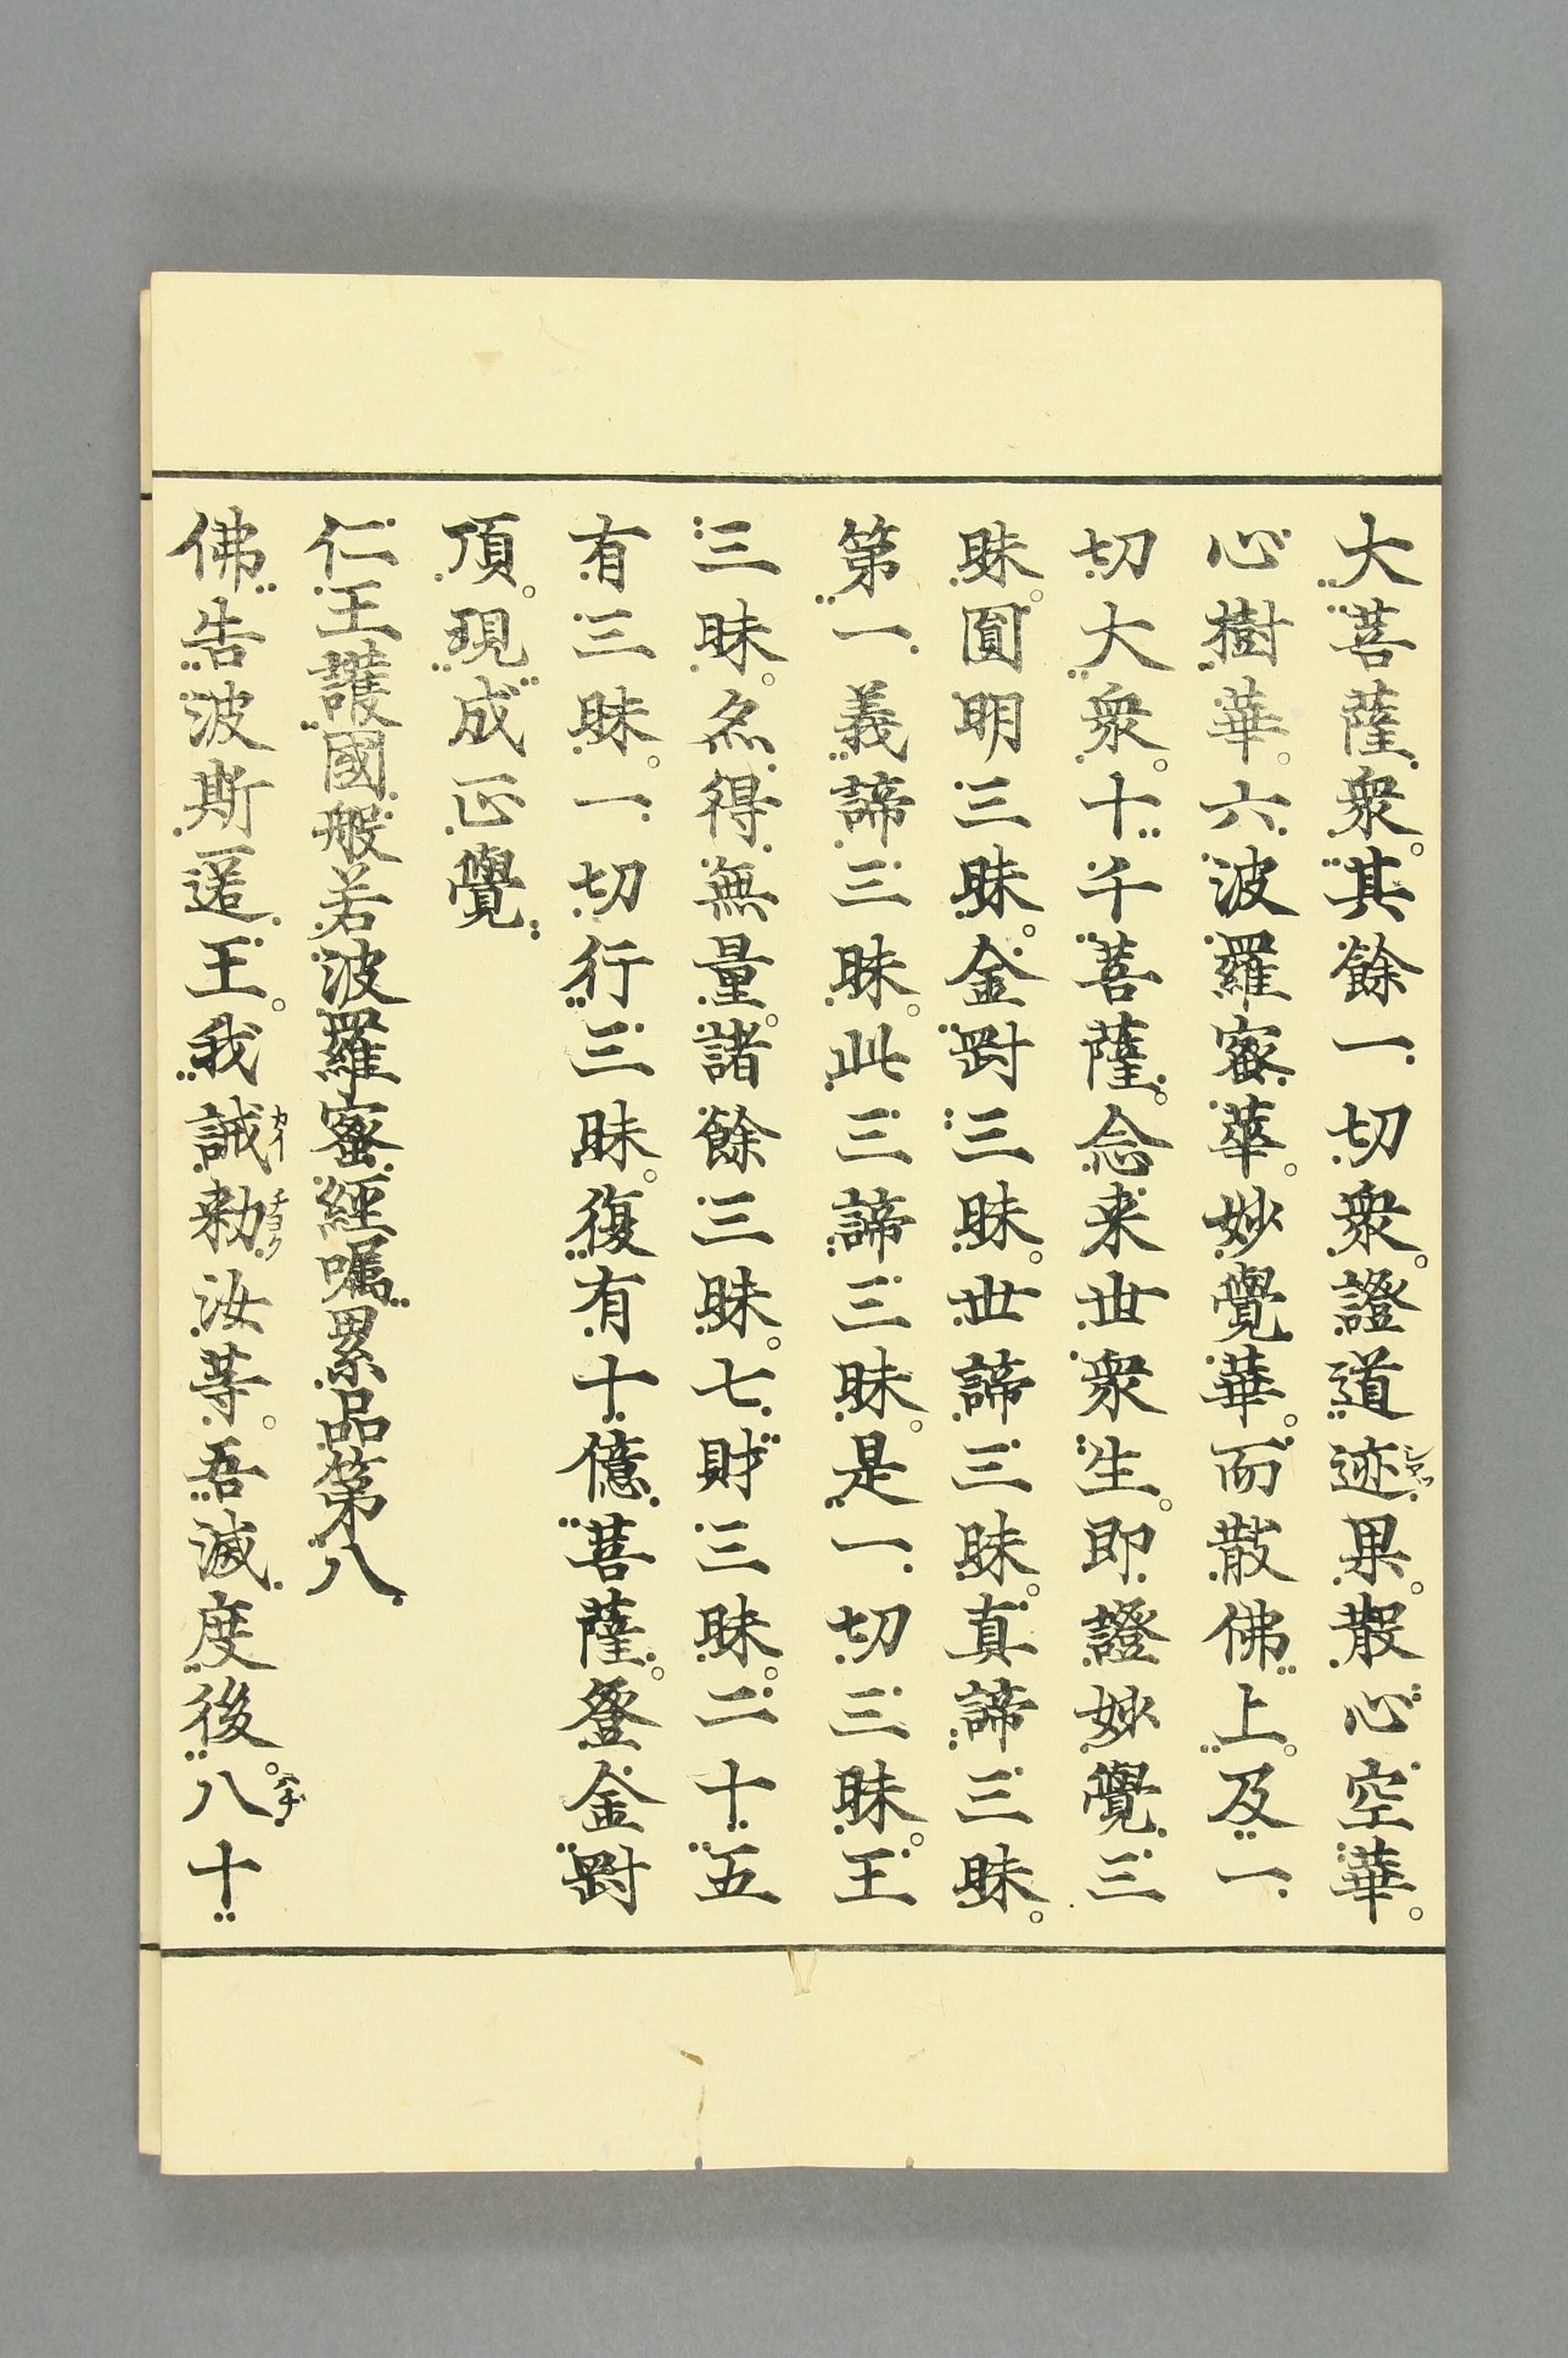 大菩薩衆。其餘一切衆。證道迹果。散心空華。
心樹華。六波羅蜜華。妙覺華。而散佛上。及一
切大衆。十千菩薩。念来世衆生。即證妙覺三
昧。圓明三昧。金剛三昧。世諦三昧。真諦三昧。
第一義諦三昧。此三諦三昧。是一切三昧。王
三昧。亦得無量。諸餘三昧。七財三昧。二十五
有三昧。一切行三昧。復有十億菩薩。登金剛
頂。現成正覺
仁王護國般若波羅蜜經嘱累品第八
佛告波斯匿王。我誡勅汝等。吾滅度後。八十